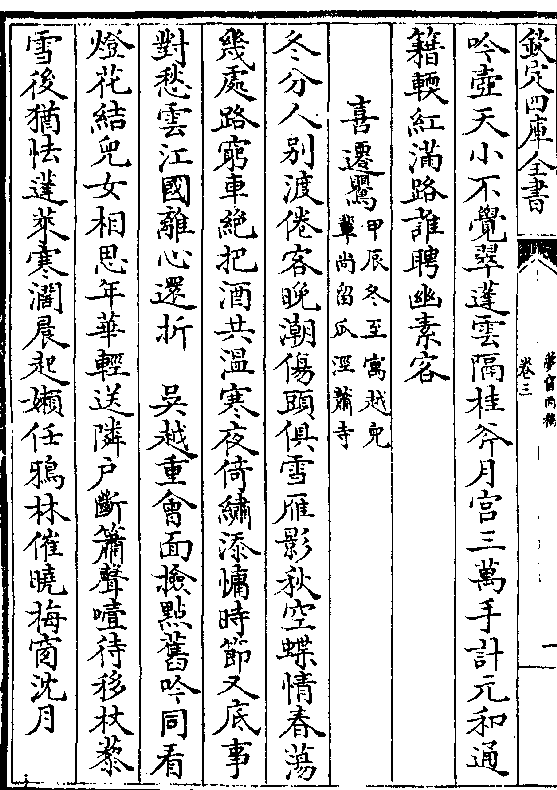 欽定四庫全書
夢窗丙稿
卷三
一
吟壺天小不覺翠蓬雲隔桂斧月宮三萬手計元和通
籍輭紅滿路誰聘幽素客
喜遷鶯甲辰冬至寓越兒
輩尚留瓜涇蕭寺
冬分人别渡倦客晚潮傷頭俱雪雁影秋空蝶情春蕩
幾處路窮車絶把酒共温寒夜倚繡添慵時節又底事
對愁雲江國離心還折　吳越重會面撿點舊吟同看
燈花結兒女相思年華輕送隣户斷簫聲噎待移杖藜
雪後猶怯蓬萊寒濶晨起嬾任鴉林催曉梅窗沈月